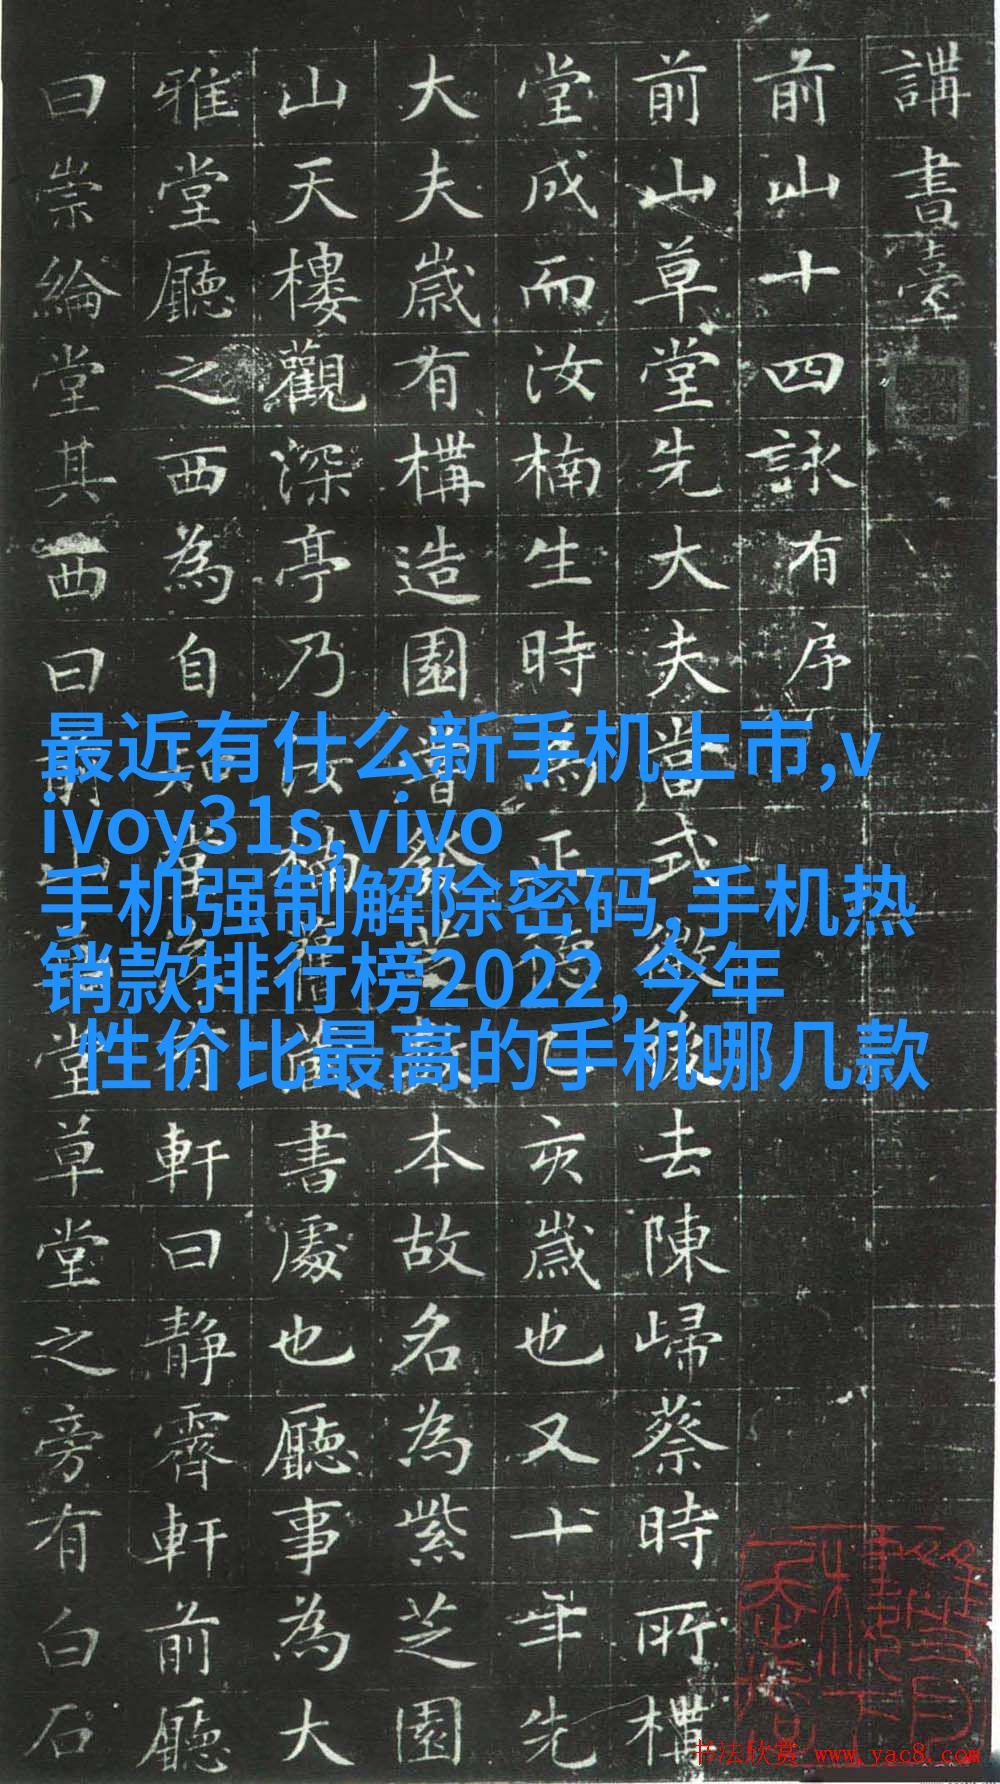 講書臺
前山十四詠有序
前山草堂先大夫當式去陳歸蔡時所
堂成而汝楠生時為正亥歲也又十年先
大夫歲有構造園曾發芝本故名為紫芝園
山天樓觀深亭乃汝楠書處也廳事為大
雅堂廳之西為自有軒曰靜霽軒前廳
曰崇綸堂其西曰前山堂草堂之旁有白石
最近有什么新手机上市,v
ivoy31s,vivo
手机强制解除密码,手机热
销款排行榜2022,今年
性价比最高的手机哪几款
书法欣赏 www.yac8.com